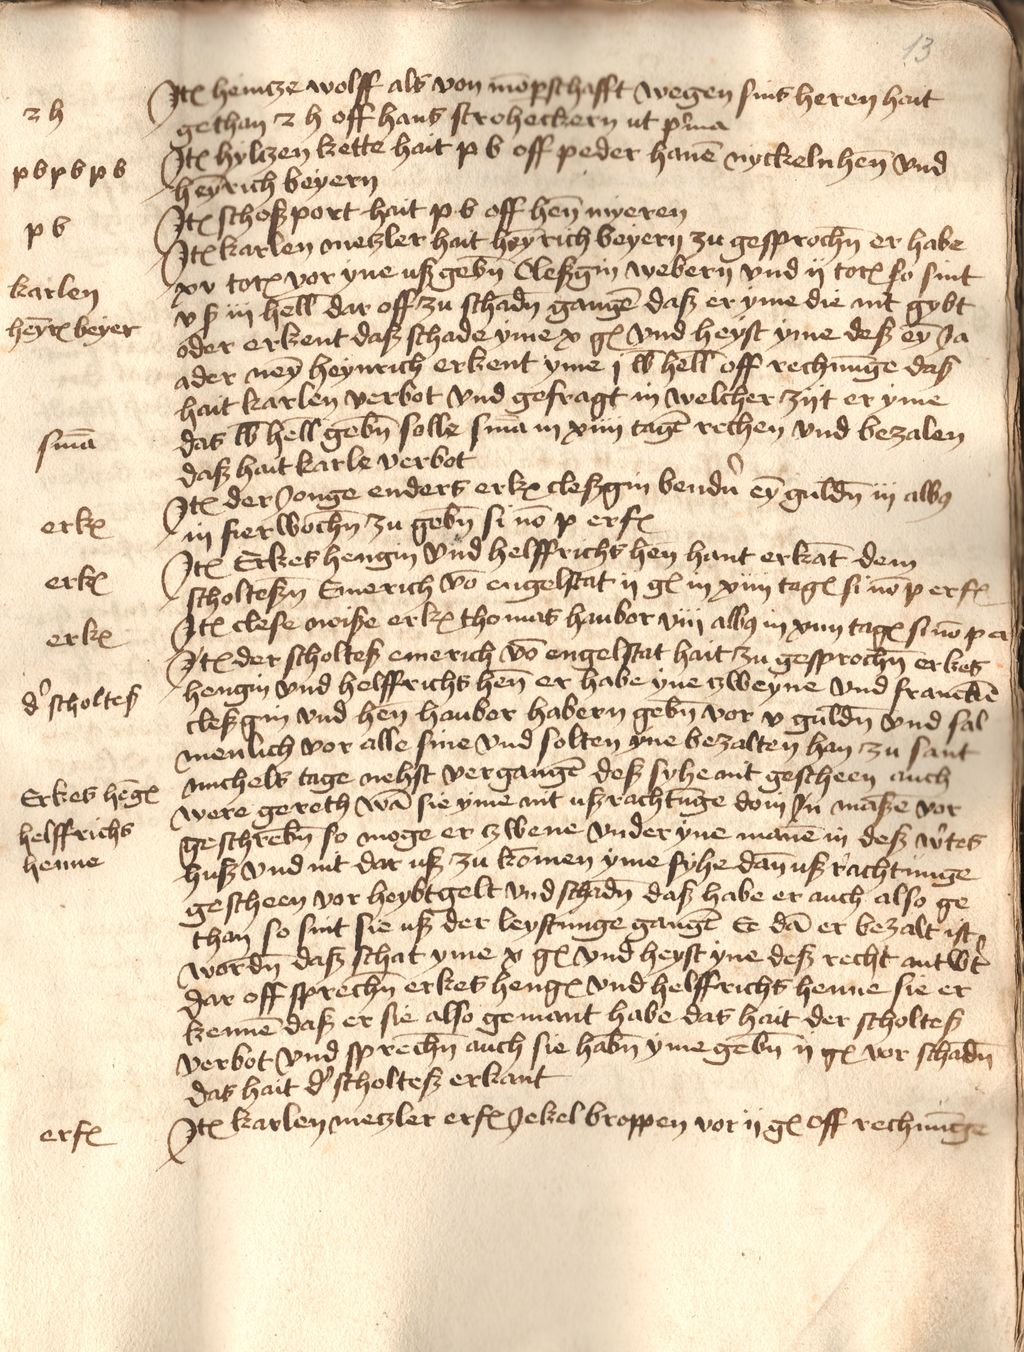 13
2 h
Itꝫ heincze wolff als von mōpschafft wegen sins heren hait
gethan 2 h off hans stroheckern ut pͥma
p b p b p b
Itꝫ hyltzen kette hait p b off peder hanē nyckeln hen̄ vnd
heȳrich beyern
p b
Itꝫ schoßport hait p b off hen̄ myeren
karlen
heȳrꝫ beyer
Itꝫ karlen metzler hait heȳrich beyern zu gesprochn̄ er habe
xv totꝫ vor yne ußgebn̄ Cleßgin webern vnd ij totꝫ so sint
v ß iij hell dar off zu schadn gangē daß er yme die nit gybt
oder erkent daß schade yme x gꝫ vnd heyst yme deß eȳ Ja
ader neȳ heynrich erkent yme j lb hell off rechnu̅ge das
hait karlen verbot vnd gefragt in welcher zijt er yme
sm̄a
das lb hell gebn̄ solle sm̄a in xiiij tagē rechen vnd bezalen
daß hait karle verbot
erkꝫ
Itꝫ der Jonge enders erkꝫ cleßgin bendẻr eȳ guldn̄ iij albꝰ
in fier wochn̄ zu gebn̄ si nō p erfꝫ
erkꝫ
Itꝫ Erkes hengin vnd helffrichs hen hant erkāt dem
scholteßn̄ Emerich vō engelstat ij gꝫ in xiiij tagꝫ si nō p erfꝫ
erkꝫ
Itꝫ clese wiße erkꝫ thomas haubor viij albꝰ in xiiij tagꝫ si nō p er
dͦ scholteß
Itꝫ der scholteß emerich vō engelstat hait zu gesprochn̄ erkes
hengin vnd helffrichs hen̄ er habe yne zweyne vnd franckē
cleßgin vnd hen̄ haubor habern gebn̄ vor v guldn̄ vnd sal
menlich vor alle sine vnd solten yne bezalten han zu sant
Erkes hēgꝫ
michels tage nehst vergangē deß syhe nit gescheen auch
were gereth wā sie yme nit ußrachtu̅ge dom̄ Jn maße vor
helffrichs
geschrebn̄ so moge er zwene vnder yne manē in deß wͥtes
henne
huß vnd nit dar uß zu komen yme syhe dan̄ uß rachtunge
gescheen vor heybtgelt vnd schadn̄ daß habe er auch also ge
than so sint sie uß der leystunge gangē Ee dā er bezalt ist
wordn̄ daß schat yme x gꝫ vnd heyst yne deß recht antwͥt
dar off sprechn̄ erkes hengꝫ vnd helffrichs henne sie er
kennē daß er sie also gemant habe das hait der scholteß
verbot vnd sprechn̄ auch sie habn̄ yme gebn̄ ij gꝫ vor schadn̄
das hait dͦ scholteß erkant
erfꝫ
Itꝫ karlen metzler erfꝫ Jekel broppen vor ij gꝫ off rechnu̅ge